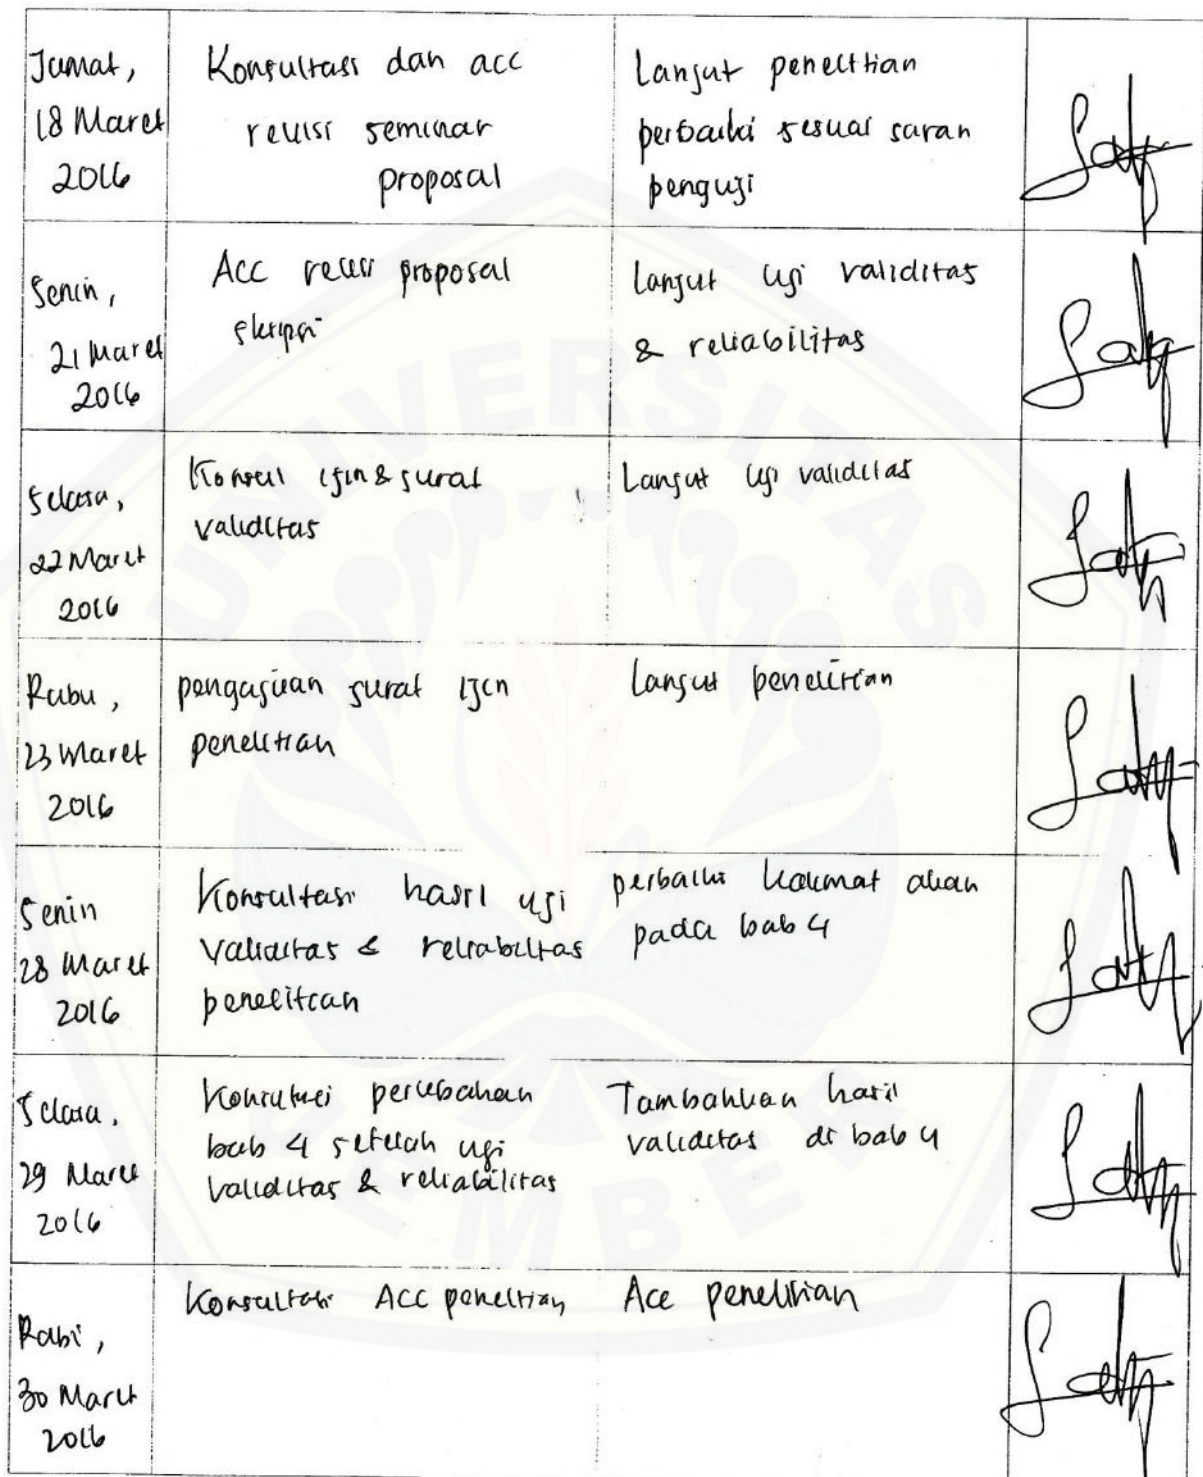 Jumat,
18 Maret
2016
Konsultasi dan acc
revisi seminar
proposal
Lanjut penelitian
perbaiki sesuai saran
penguji
Senin,
21 Maret
2016
Acc revisi proposal
skripsi
Lanjut uji validitas
& reliabilitas
Selasa,
22 Maret
2016
Konsul ijin & surat
validitas
Lanjut uji validitas
Rabu,
23 Maret
2016
pengajuan surat ijin
penelitian
Lanjut penelitian
Senin
28 Maret
2016
Konsultasi hasil uji
validitas & reliabilitas
penelitian
perbaiki kalimat akan
pada bab 4
Selasa,
29 Maret
2016
Konsultasi perubahan
bab 4 setelah uji
validitas & reliabilitas
Tambahkan hasil
validitas di bab 4
Rabu,
30 Maret
2016
Konsultasi Acc penelitian
Acc penelitian
UNIVERSITAS
JEMBER